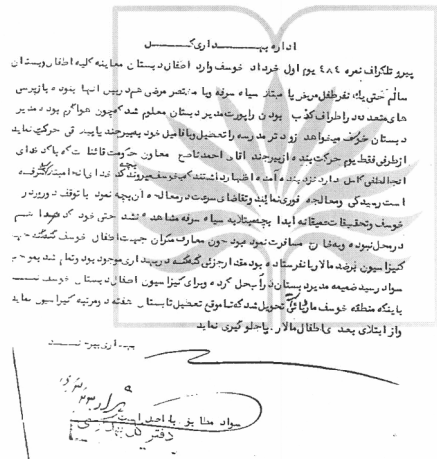 اداره بهداری کل
پیرو تلگراف نمره ۴۸۴ یوم اول خرداد خوسف وارد اطفال دبستان معاینه کلیه اطفال دبستان
سالم حتی یک نفر طفل مریض یا مبتلا سیاه سرفه و یا مختصر مرضی هم در بین آنها نبوده بازپرسی
های متعدده در اطراف کذب بودن راپورت مدیر دبستان معلوم شد که چون هوا گرم بود مدیر
دبستان خوسف میخواهد زودتر مدرسه را تعطیل و با فامیل خود به بیرجند یا حرکت نماید
از طرفی فقط یوم حرکت بنده از بیرجند آقای احمد ناصح معاون حکومت قائنات که با کدخدای
آنجا کامل دارد نزد بنده آمده اظهار داشتند که بخوسف میروند بچه کدخدای آنجا
است رسیدگی و معالجه فوری نمایند و تقاضای سرعت در معالجه آن بچه نمود با توقف در
خوسف و تحقیقات عمیقانه ابدا بچه مبتلا به سیاه سرفه مشاهده نشد حتی خود کدخدا هم
در محل نبوده و به خارج مسافرت نمود بود چون معارف مکران جهت اطفال خوسف گنه گنه جهت
کنیزاسیون بر ضد مالاریا نفرستاده بود مقدار جزئی گنه گنه در بهداری موجود بود و تمام شد بموجب
سواد رسید ضمیمه مدیر دبستان در آب حل کرده و برای کنیزاسیون اطفال دبستان خوسف
با اینکه منطقه خوسف مالاریائی تحویل شد که تا موقع تعطیل تابستان هفته دو مرتبه کنیزاسیون نماید
و از ابتلای بعدی اطفال مالاریا جلوگیری نماید
بهداری بیرجند
سواد مطابق با اصل است
دفتر کل